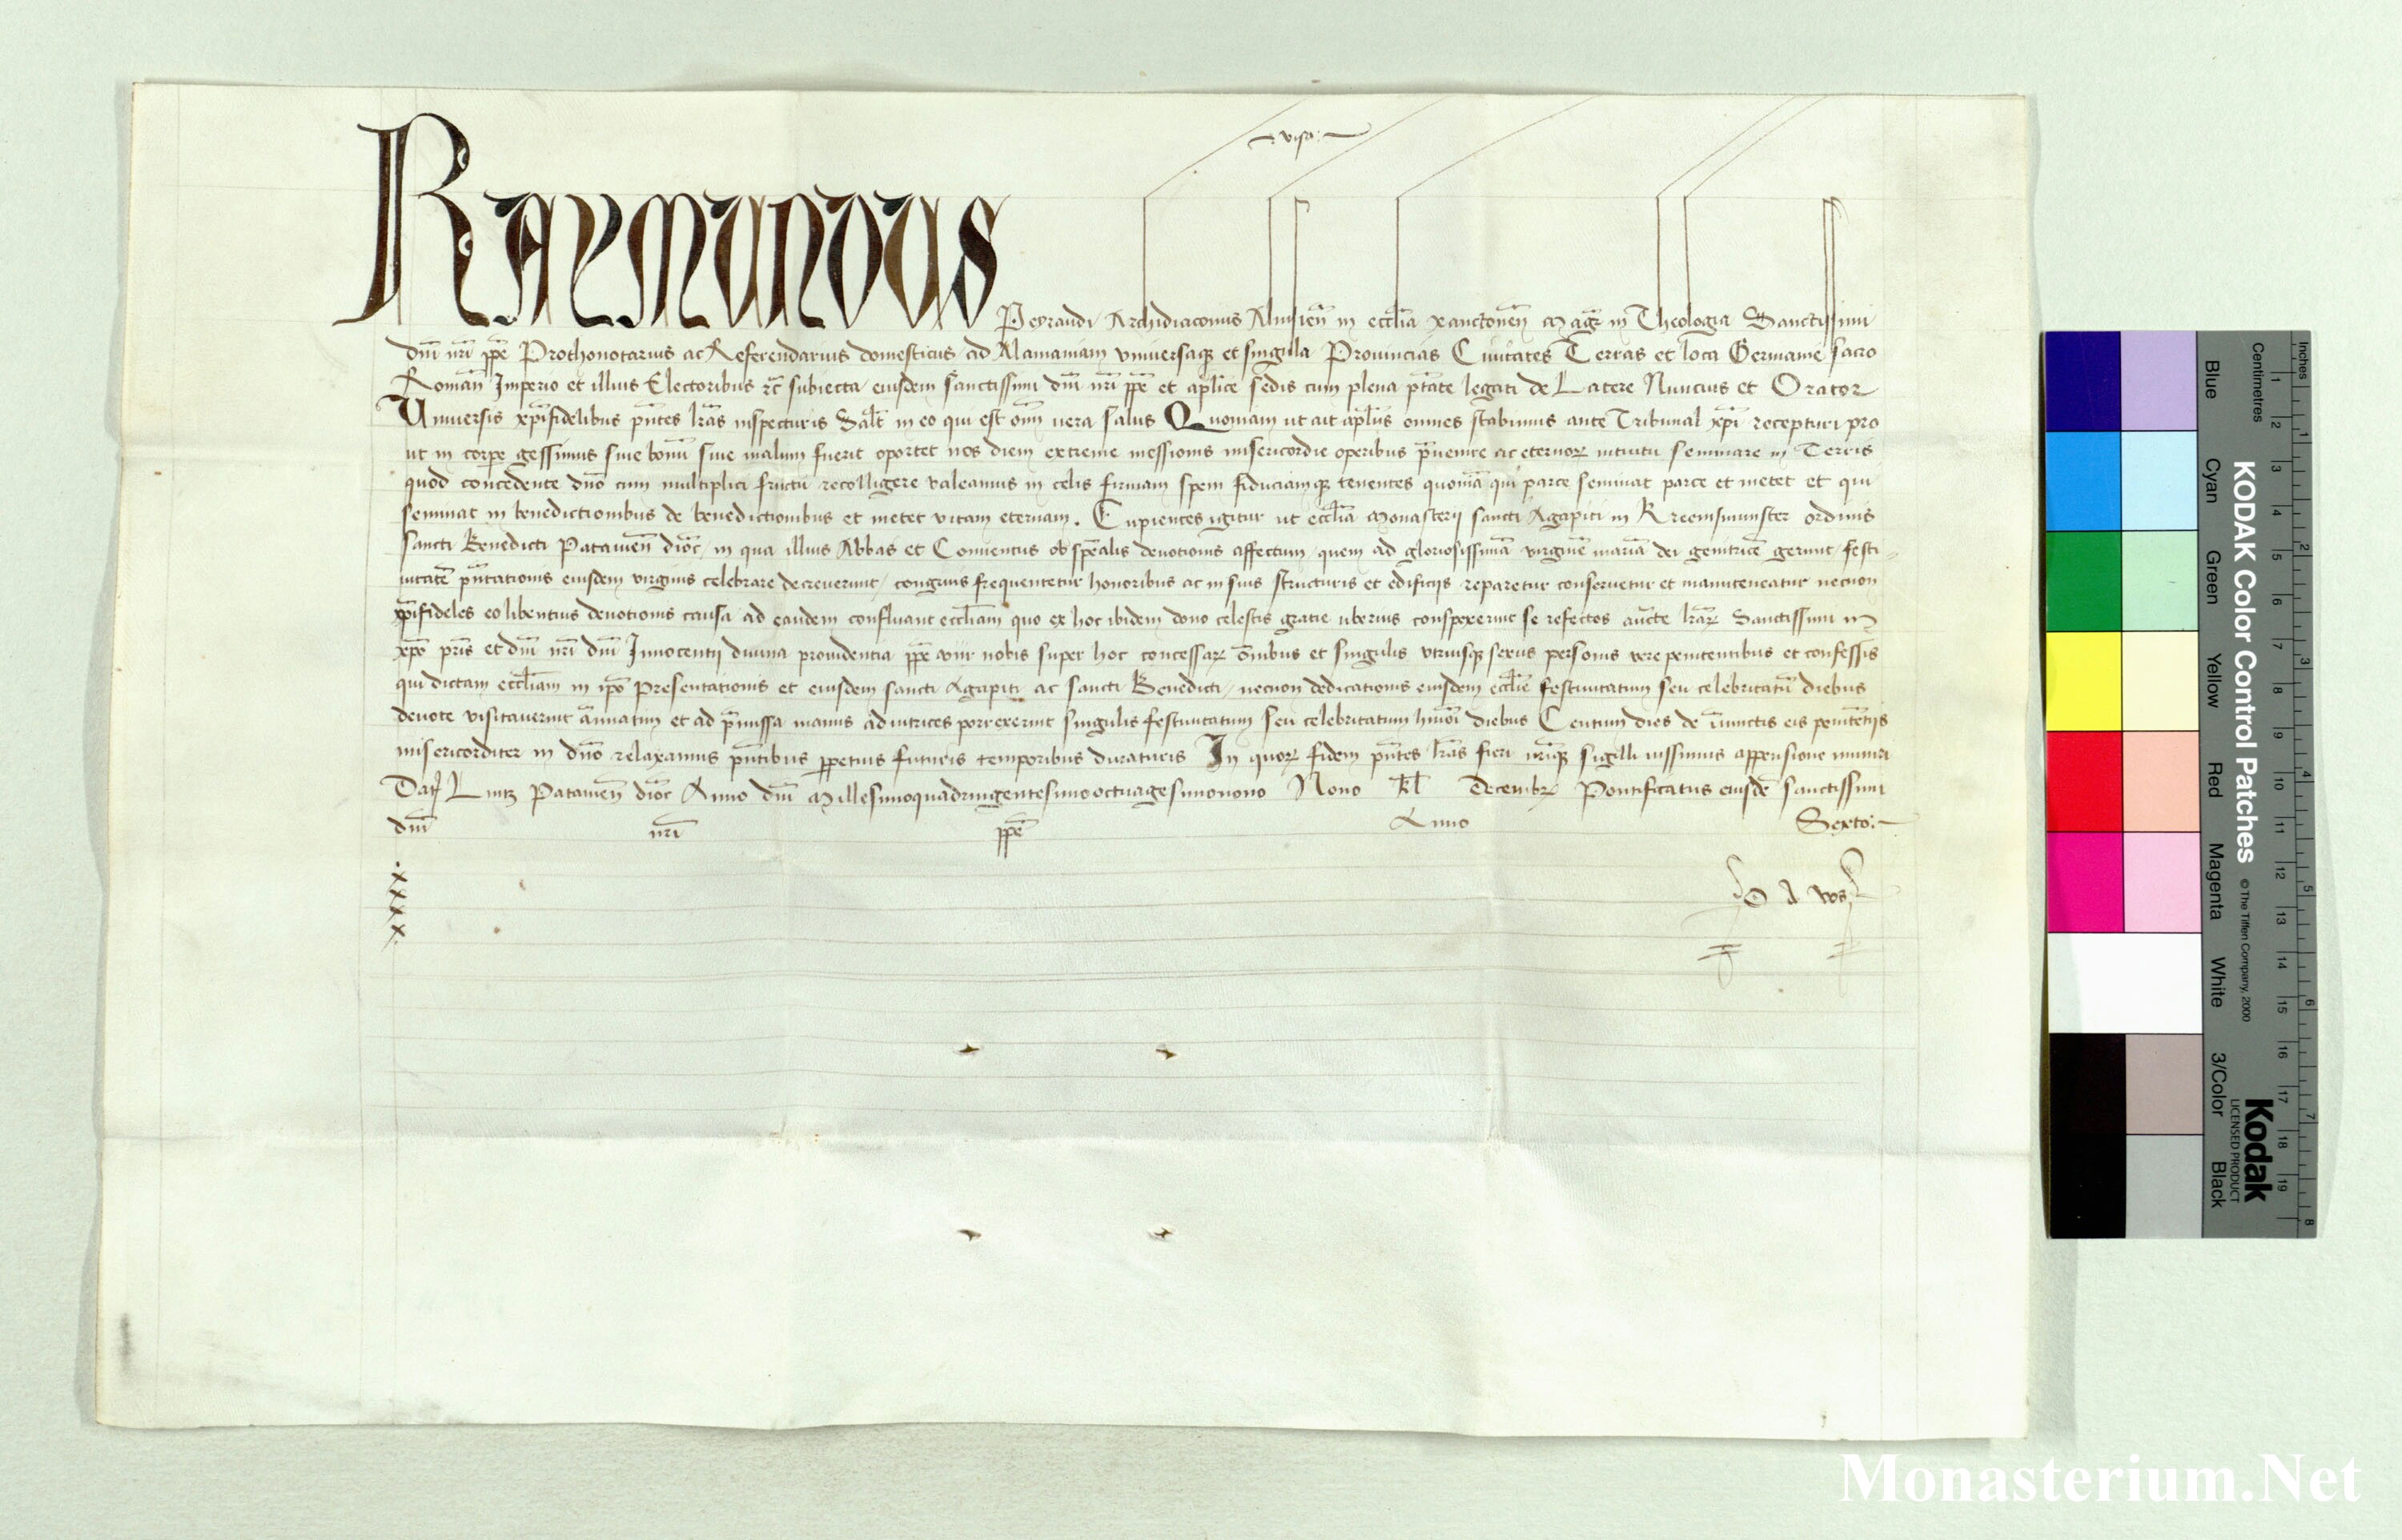 visa
RAYMUNDUS Peyraudi Archidiaconus Alnisien̄ in eccl̄ia Xanctonen̄ Magr̄ in Theologia Sanctissimi
dn̄i nr̄i pp̄e Prothonotarius ac Referendarius domesticus ad Alamaniam vniuersasqꝫ et singula Prouincias Ciuitates Terras et loca Germanie sacro
Roman̄ Imperio et illius Electoribus ꝛc̄ subiecta eiusdem sanctissimi dn̄i nr̄i pp̄e et ap̄lice sedis cum plena ptāte legati de Latere Nuncius et Orator
Uniuersis xp̄ifidelibus pn̄tes lr̄as inspecturis Salt̄ in eo qui est om̄ uera salus Quoniam ut ait ap̄lus omnes stabimus ante Tribunal xp̄i recepturi pro
ut in corpe gessimus siue bonū siue malum fuerit oportet nos diem extreme messionis misericordie operibus p̄uenire ac eternoꝝ intuitu seminare in Terris
quod concedente dn̄o cum multiplici fructu recolligere valeamus in celis firmam spem fiduciamqꝫ tenentes quoniā qui parce seminat parce et metet et qui
seminat in benedictionibus de benedictionibus et metet vitam eternam. Cupientes igitur ut eccl̄ia Monasterij sancti Agapiti in Kremsmunster ordinis
sancti Benedicti Patauien̄ dioc̄ in qua illius Abbas et Conuentus ob sp̄ealis deuotionis affectum quem ad gloriosissimā virginē mariā dei genitricē gerunt festi
uitatē pn̄tationis eiusdem virginis celebrare decreuerunt congruis frequentetur honoribus ac in suis structuris et edificijs reparetur conseruetur et manuteneatur necnon
xp̄ifideles eo libentius deuotionis causa ad eandem confluant eccl̄iam quo ex hoc ibidem dono celestis gratie uberius conspexerint se refectos auc̄te lr̄aꝝ Sanctissimi in
xp̄o pr̄is et dn̄i nr̄i dn̄i Innocentij diuina prouidentia pp̄e viij nobis super hoc concessaꝝ om̄ibus et singulis utriusqꝫ sexus personis vere penitentibus et confessis
qui dictam eccl̄iam in ip̄o Presentationis et eiusdem sancti Agapiti ac sancti Benedicti necnon dedicationis eiusdem eccl̄ie festiuitatum seu celebritatū diebus
deuote visitauerint annatim et ad p̄missa manus adiutrices porrexerint singulis festiuitatum seu celebritatum hmōi diebus Centum dies de iniunctis eis penitētijs
misericorditer in dn̄o relaxamus pn̄tibus ꝑpetuis futuris temporibus duraturis In quoꝝ fidem pn̄tes lr̄as fieri nr̄iqꝫ sigilli iussimus appensione muniri
Dat̄ Lintz Patauien̄ dioc̄ Anno dn̄i Millesimoquadringentesimooctuagesimonono Nono kl̄ Decembr̄ Pontificatus eiusdē sanctissimi
dn̄i nr̄i pp̄e Anno Sexto
x
x
x
x
Blue
Cyan
Green
Yellow
Red
Magenta
White
3/Color
Black
KODAK Color Control Patches
© The Tiffen Company, 2000
Kodak
LICENSED PRODUCT
Centimetres
1 2 3 4 5 6 7 8 9 10 11 12 13 14 15 16 17 18 19
Inches
1 2 3 4 5 6 7 8
Monasterium.Net